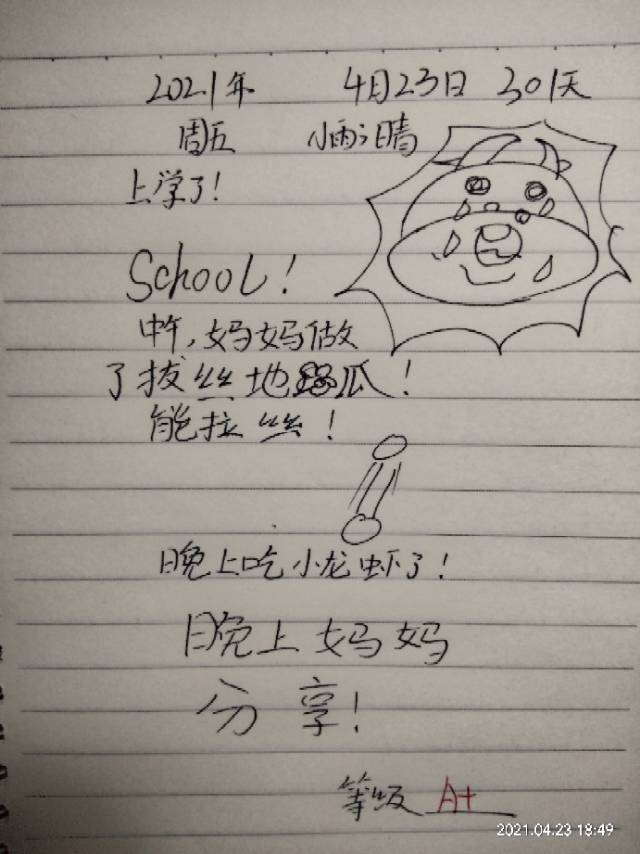 2021年 4月23日 301天
周五 小雨冫晴
上学了!
School!
中午,妈妈做
了拔丝地瓜!
能拉丝!
晚上吃小龙虾了!
晚上妈妈
分享!
等级 A+
2021.04.23 18:49